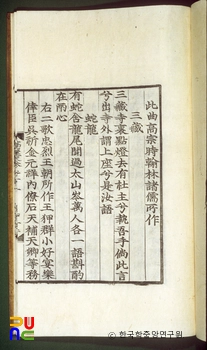 此曲高宗時翰林諸儒所作
三藏
三藏寺裏點燈去有社主兮執吾手倘此言
兮出寺外謂上座兮是汝語
蛇龍
有蛇含龍尾聞過太山岑萬人各一語斟酌
在兩心
右二歌忠烈王朝所作王狎群小好宴樂
倖臣吳祈金元祥內僚石天補天卿等務
ⓒ 한국학중앙연구원